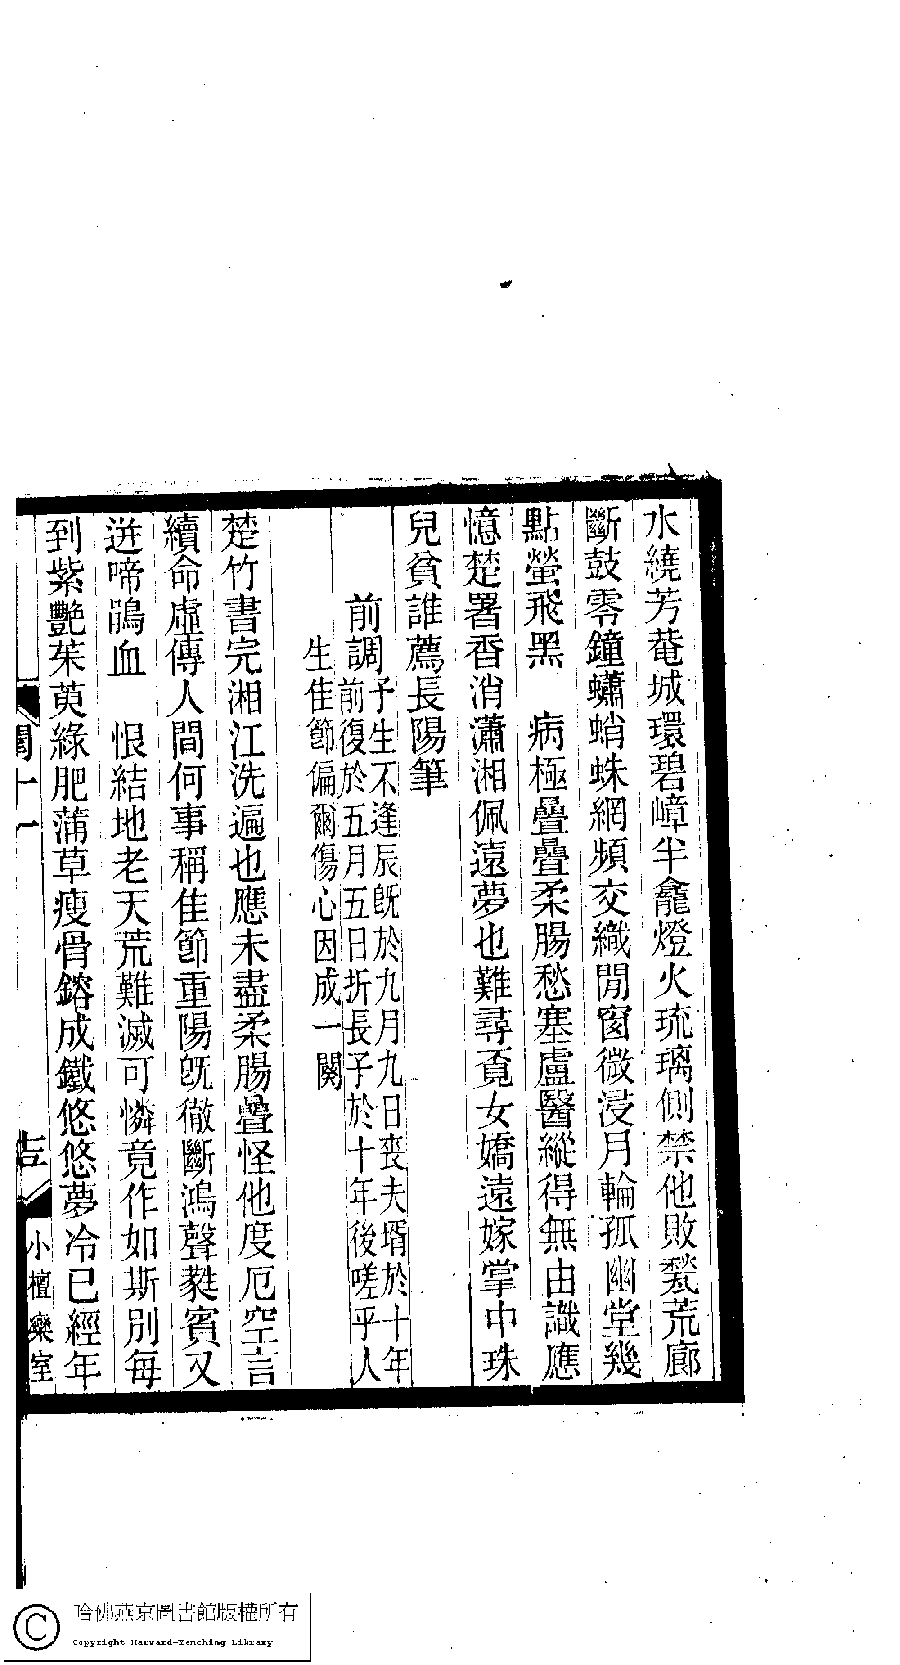 水繞芳菴城環碧嶂半龕燈火琉璃側禁他敗甃荒廊
斷鼓零鐘蠨蛸蛛網頻交織閒窗微浸月輪孤幽堂幾
點螢飛黑　病極疊疊柔腸愁塞盧醫縱得無由識應
憶楚署香消瀟湘佩遠夢也難尋覓女嬌遠嫁掌中珠
兒貧誰薦長陽筆
前調
予生不逢辰旣於九月九日喪夫壻於十年
前復於五月五日折長子於十年後嗟乎人
生佳節偏爾傷心因成一闋
楚竹書完湘江洗遍也應未盡柔腸疊怪他度厄空言
續命虛傳人間何事稱佳節重陽旣徹斷鴻聲蕤賓又
迸啼鵑血　恨結地老天荒難滅可憐竟作如斯別每
到紫艷茱萸綠肥蒲草瘦骨鎔成鐵悠悠夢冷已經年
閨十一
小檀欒室
哈佛燕京圖書館版權所有
Copyright Harvard-Yenching Library